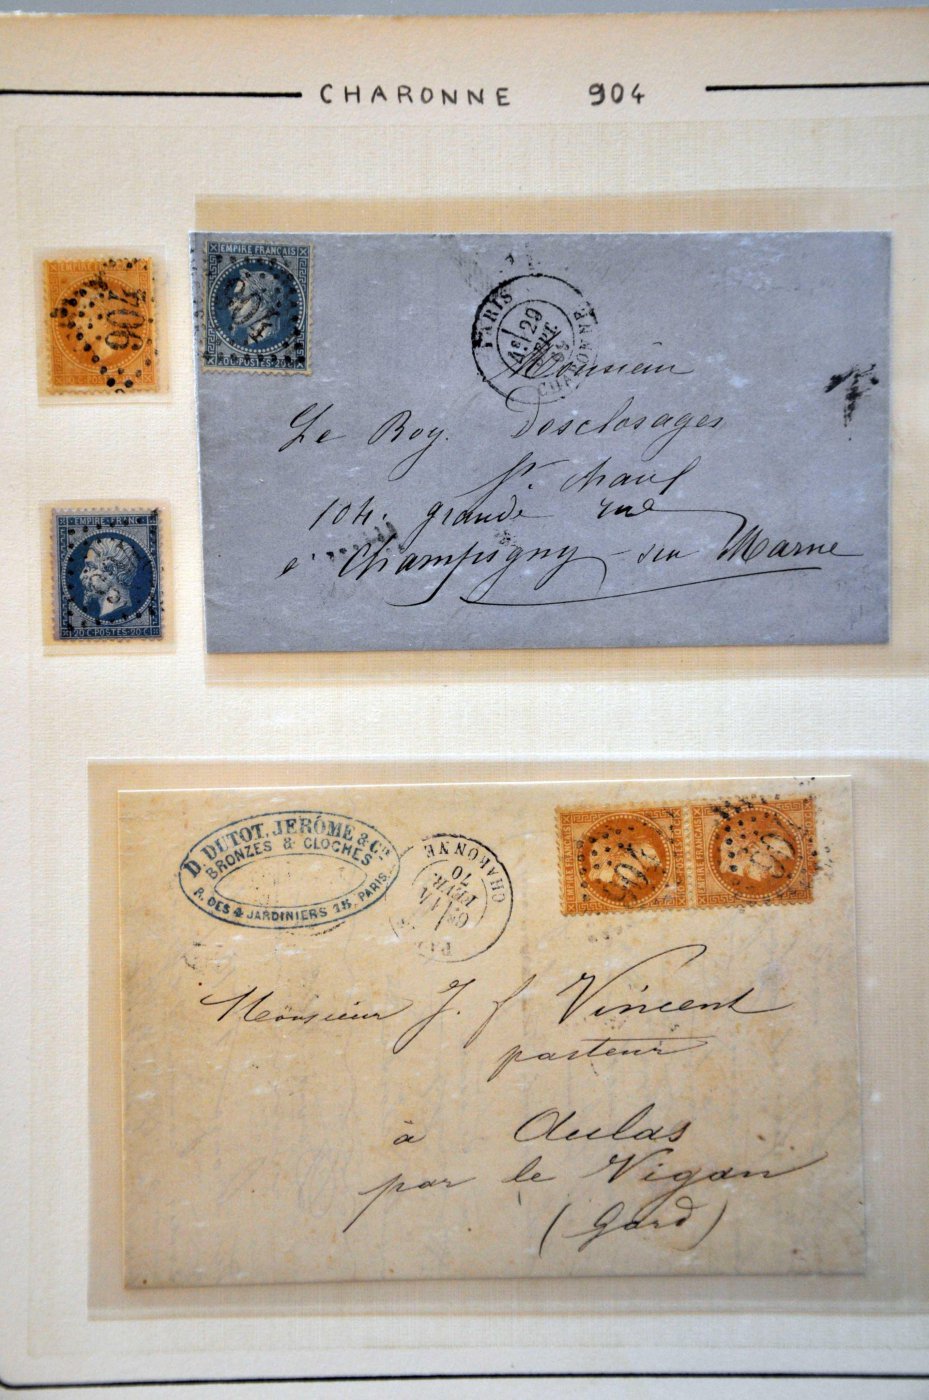 CHARONNE 904
904
EMPIRE FRANÇAIS
904
20 C POSTES 20 C
PARIS
29
CHARONNE
Monsieur
Le Roy. Desclosages
St. Maur
104. grande rue
à Champigny sur Marne
EMPIRE FRANC
20 C POSTES 20 C
D. DUTOT, JERÔME & Cie
BRONZES & CLOCHES
R. DES 4 JARDINIERS 15, PARIS
CHARONNE
14
FEVR.
70
EMPIRE FRANÇAIS
904
Monsieur J. f Vincent
pasteur
à Aulas
par le Vigan
(Gard)